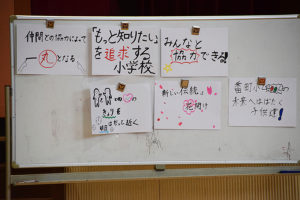 仲間との協力によって
一丸となる
「もっと知りたい」
を追求する
小学校
みんなと
協力できる!
新しい伝統
花開け
未来へはばたく
子供達!